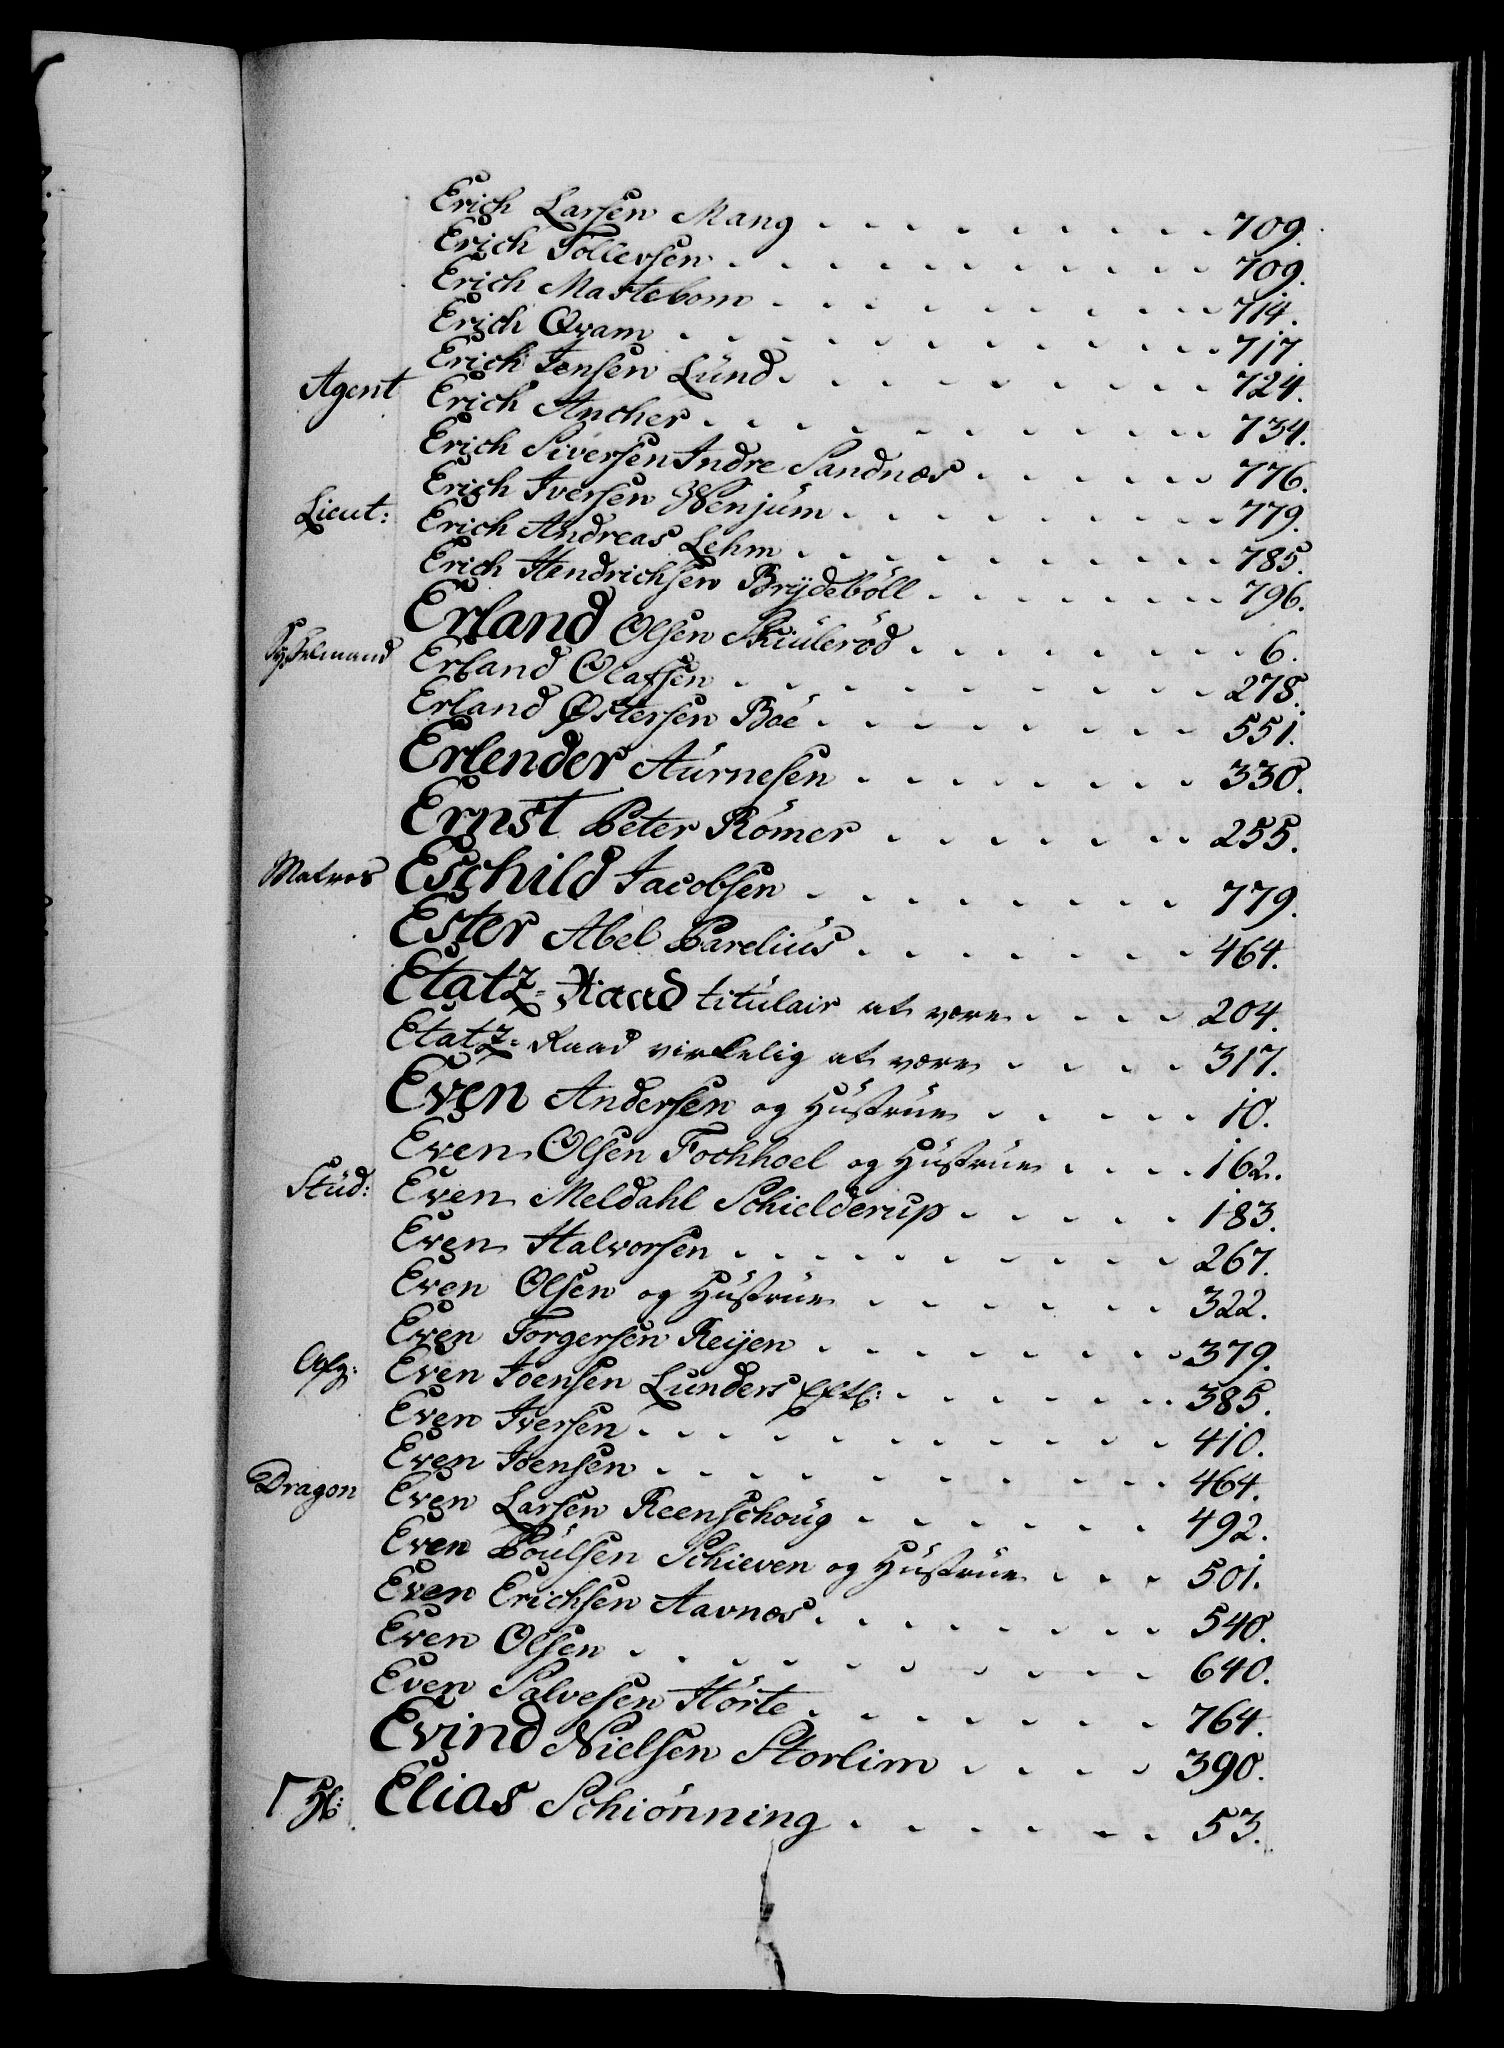 Erich Larsen Mang . . . . . . . . . 709.
Erich Tollevsen . . . . . . . . . . 709.
Erich Mastebom . . . . . . . . . 714.
Erich Qvam . . . . . . . . . . . 717.
Erich Jensen Lund . . . . . . . . . 724.
Agent Erich Ancher . . . . . . . . . . . 734.
Erich Siversen Indre Sandnæs . . . . . . 776.
Erich Iversen Wenjum . . . . . . . . . 779.
Lieut: Erich Andreas Lehm . . . . . . . . . 785.
Erich Hendrichsen Brydebøll . . . . . . . . 796.
Erland Olsen Skiulerød . . . . . . . . 6.
Sysselmand Erland Olafsen . . . . . . . . . . 278.
Erland Østersen Boe . . . . . . . . 551.
Erlender Aurnesen . . . . . . . . 330.
Ernst Peter Römer . . . . . . . 255.
Matros Eschild Jacobsen . . . . . . . . 779.
Ester Abel Parelius . . . . . . . 464.
Etatz-Raad titulair at være . . . . 204.
Etatz-Raad virkelig at være . . . . 317.
Even Andersen og Hustrue . . . . . 10.
Even Olsen Fochhoel og Hustrue . . . . 162.
Stud: Even Meldahl Schielderup . . . . . 183.
Even Halvorsen . . . . . . . . . . 267.
Even Olsen og Hustrue . . . . . . 322.
Even Torgersen Reyen . . . . . . . . 379.
Even Joensen Lunders Eftl: . . . . . . . 385.
Even Iversen . . . . . . . . . . . 410.
Even Joensen . . . . . . . . . . 464.
Dragon Even Larsen Reenschoug . . . . . . 492.
Even Poulsen Schieven og Hustrue . . . 501.
Even Erichsen Aavnæs . . . . . . . . 540.
Even Olsen . . . . . . . . . . . 640.
Even Salvesen Hörte . . . . . . . . 764.
Evind Nielsen Storlim . . . . 390.
Elias Schiönning . . . . . . . 53.